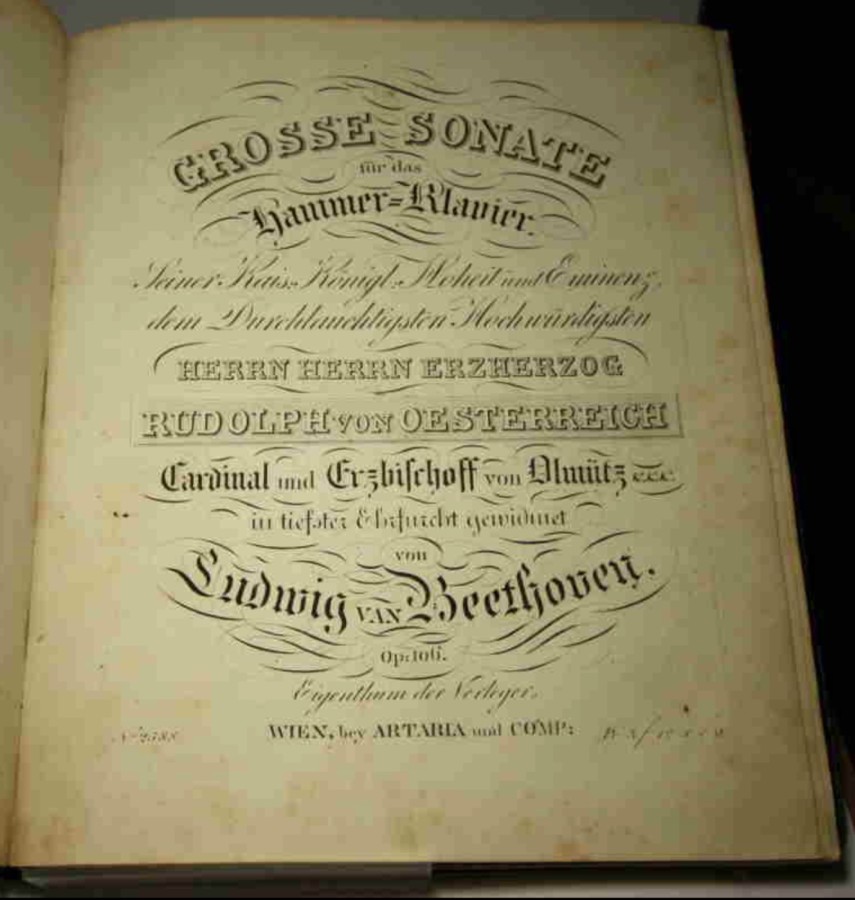 GROSSE SONATE
für das
Hammer=Klavier.
Seiner Kais: Königl: Hoheit und Eminenz,
dem Durchlauchtigsten Hochwürdigsten
HERRN HERRN ERZHERZOG
RUDOLPH VON OESTERREICH
Cardinal und Erzbischoff von Olmütz &c.&c.
in tiefster Ehrfurcht gewidmet
von
Ludwig VAN Beethoven.
Op: 106.
Eigenthum der Verleger.
WIEN, bey ARTARIA und COMP: